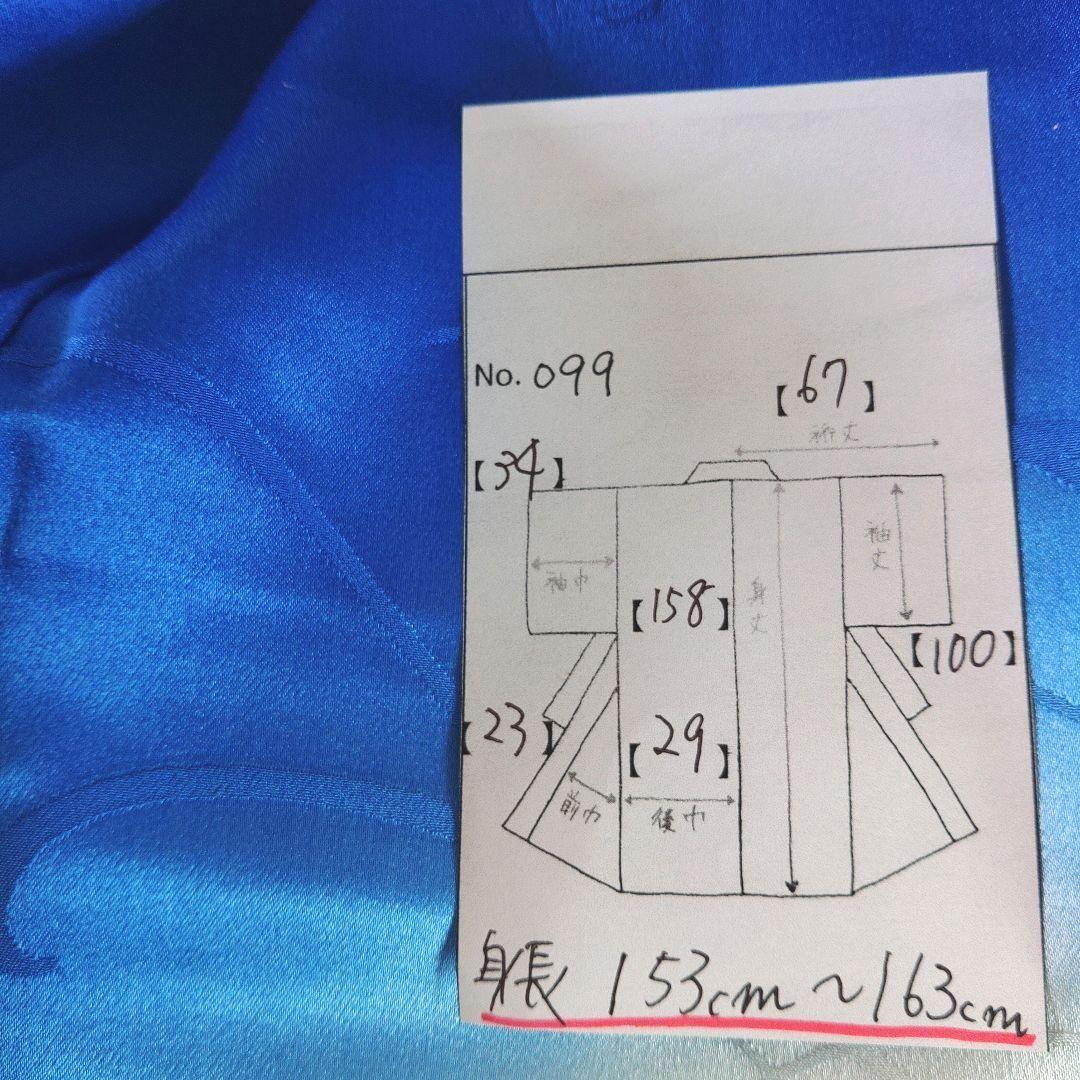 No. 099
【67】
裄丈
【34】
袖巾
袖丈
【158】
身丈
【100】
【23】
【29】
前巾
後巾
身長 153cm～163cm